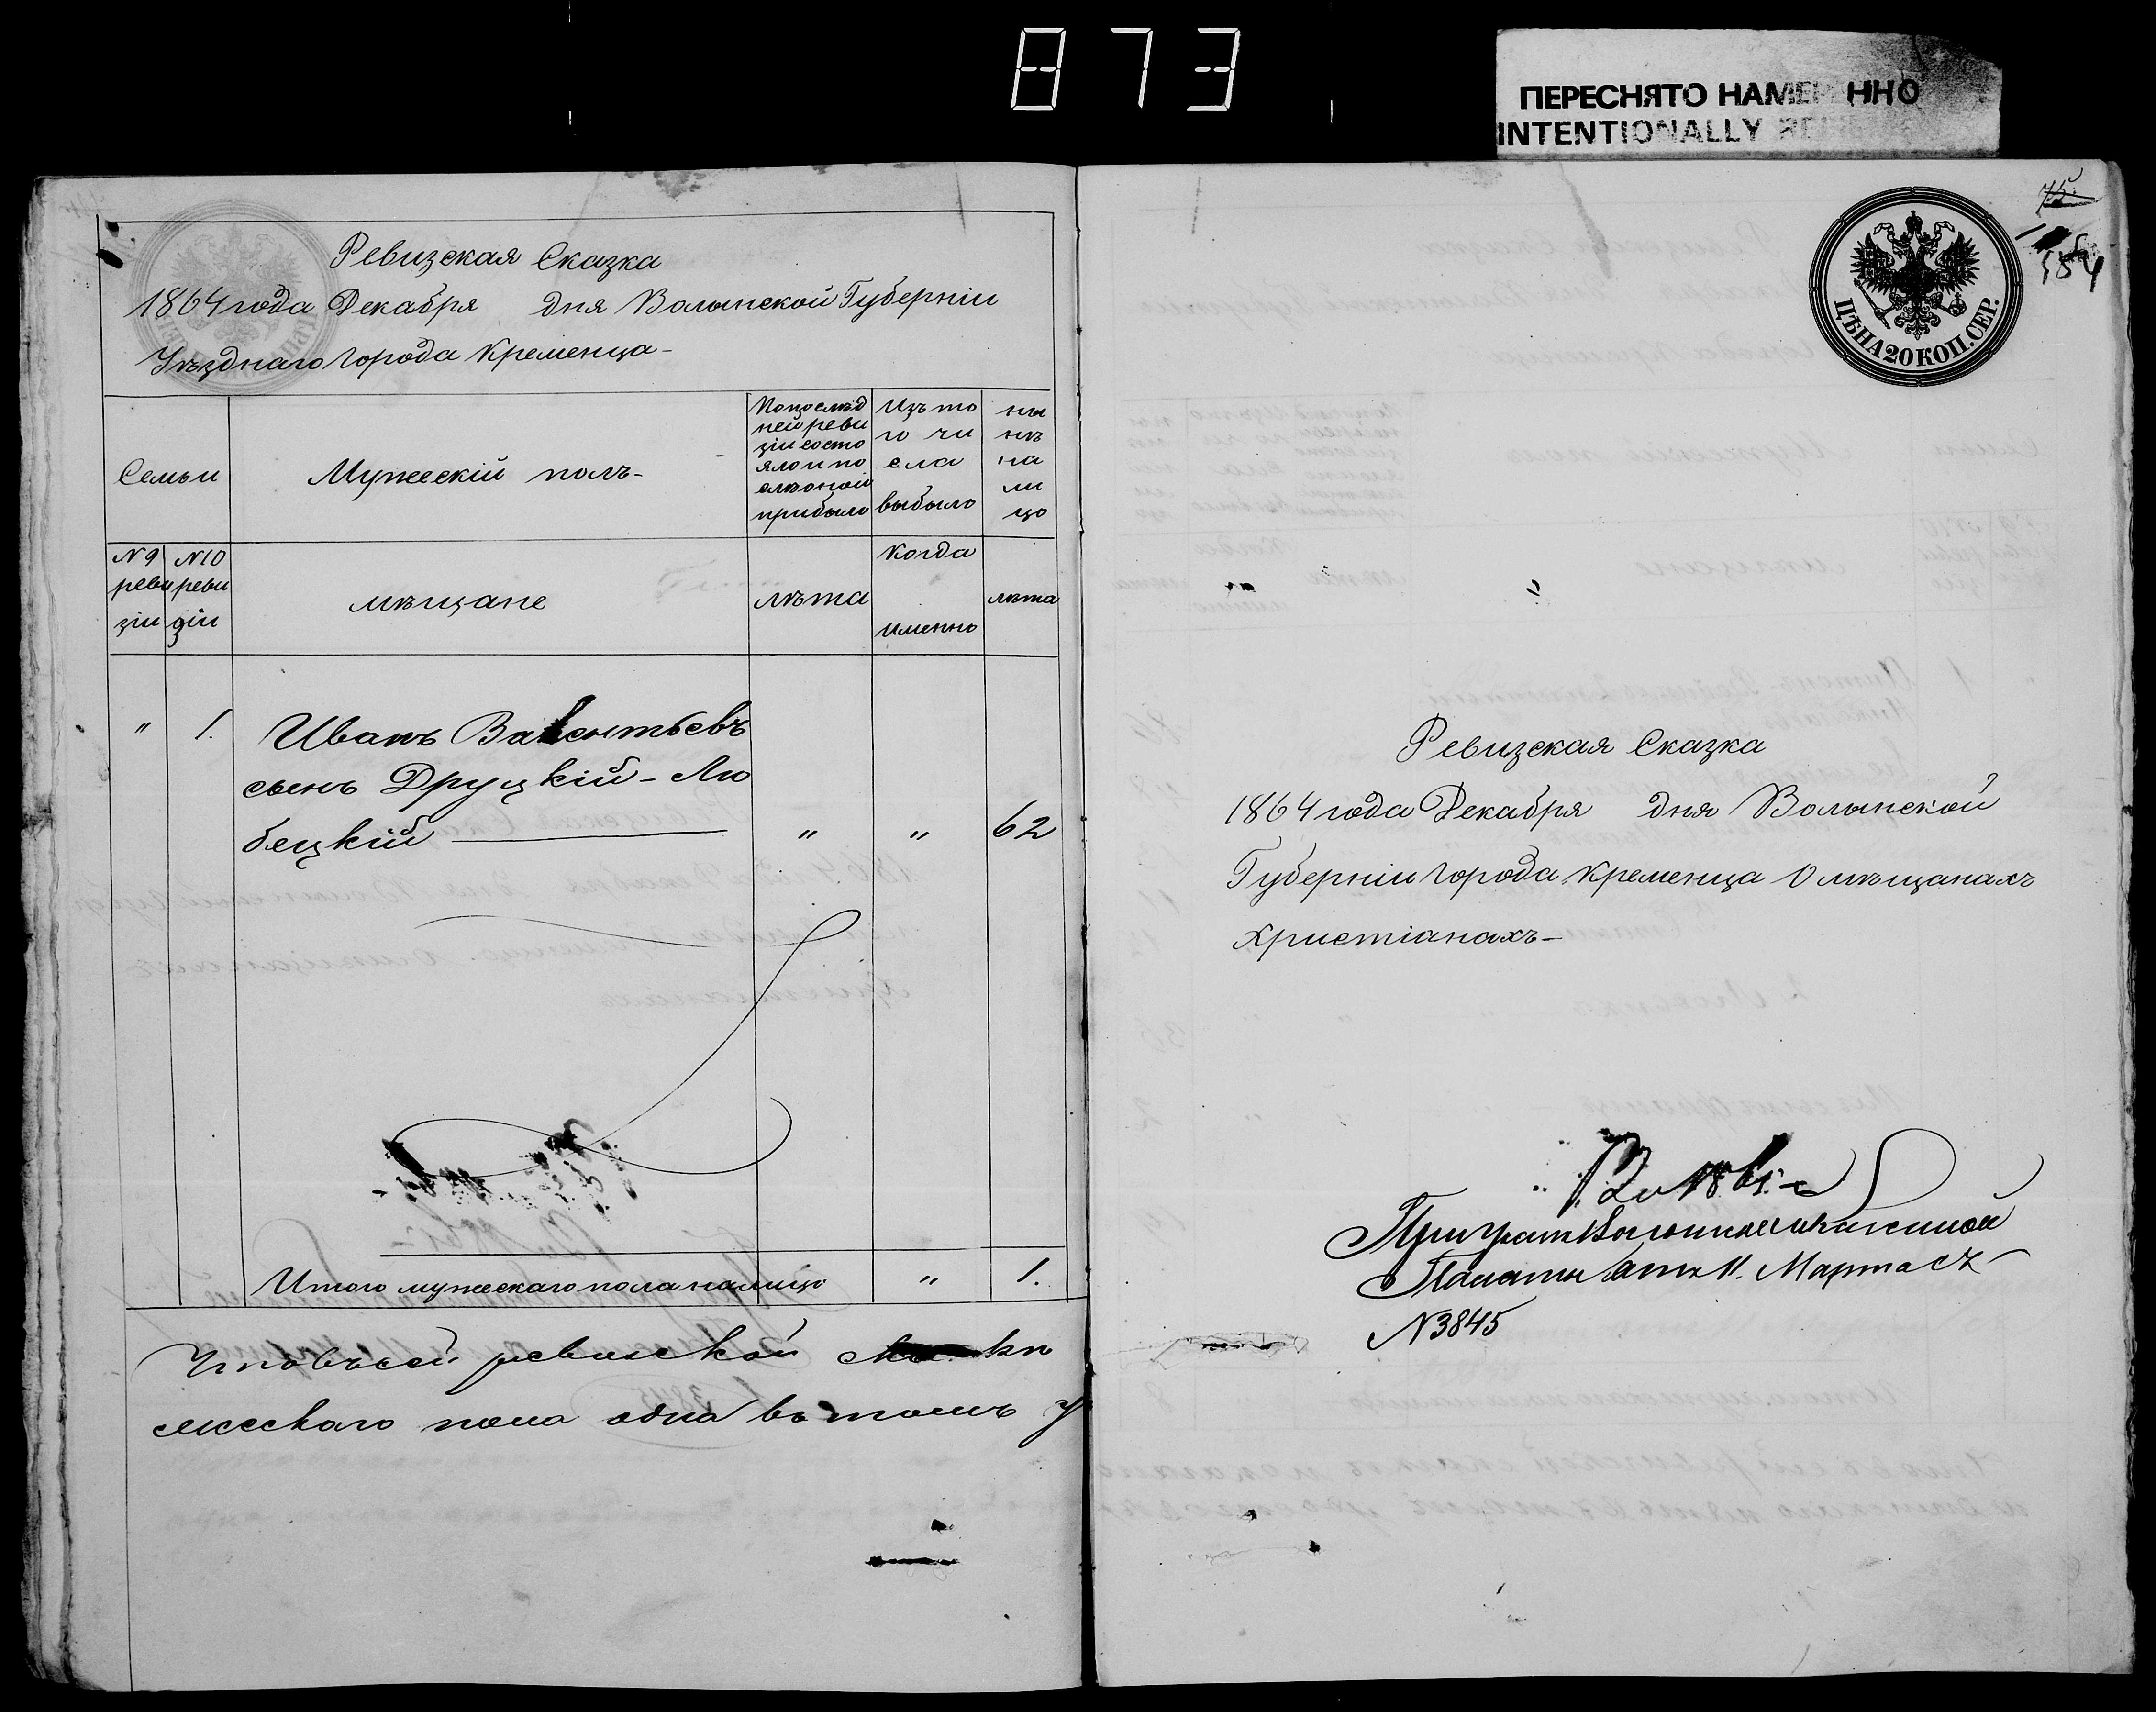 873
ПЕРЕСНЯТО НАМЕ ННО
INTENTIONALLY RE
Ревизская Сказка
1864 года Декабря дня Волынской Губерніи
Уѣзднаго города Кременца-
Семьи
Мужескій полъ-
По послѣд
ней реви
зіи состо
яло и по
слѣ оной
прибыло
Изъ то
го чи
сла
выбыло
ны
нѣ
на
ли
цо
№ 9
реви
зіи
№ 10
реви
зіи
мѣщане
лѣта
когда
именно
лѣта
" 1. Иванъ Валентьевъ
сынъ Друцкій-Лю
бецкій " " 62
Итого мужескаго пола налицо " 1.
Что въ сей ревизской
мужескаго пола одна въ томъ у
75
184
ЦѢНА 20 КОП. СЕР.
Ревизская Сказка
1864 года Декабря дня Волынской
Губерніи города Кременца О мѣщанахъ
христіанахъ-
Палаты отъ 11. Марта съ
N 3845